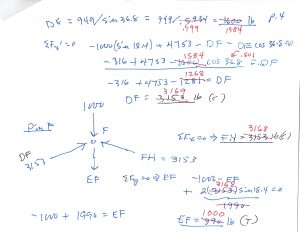 DE = 949/sin 36.8 = 949/.5934 = 1600 lb P.4
.599 1584
ΣFy'=0 -1000(sin 18.4) + 4753 - DF - DE cos 36.8 = 0
1584 .801
-316 + 4753 - 1600 cos 36.8 = DF
1268
-316 + 4753 - 1281 = DF
3169
DF = 3153 lb (c)
1000
Pin F
F
3168
ΣFx=0 → FH = 3153 lb (c)
DF
3153
FH = 3153
EF
ΣFy=0 → EF -1003
3168
+ 2(3153) sin 18.4 = 0
1990
-1000 + 1990 = EF
1000
EF = 990 lb (T)